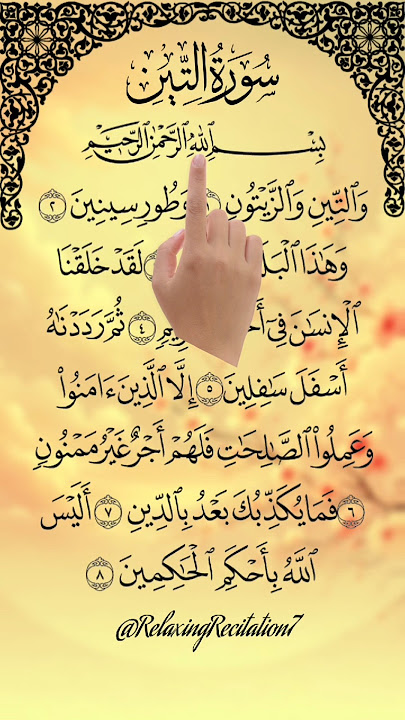 سُورَةُ التِّينِ
بِسْمِ ٱللَّهِ ٱلرَّحْمَٰنِ ٱلرَّحِيمِ
وَٱلتِّينِ وَٱلزَّيْتُونِ وَطُورِ سِينِينَ ٢
وَهَٰذَا لَقَدْ خَلَقْنَا
ٱلْإِنسَٰنَ فِىٓ ٤ ثُمَّ رَدَدْنَٰهُ
أَسْفَلَ سَٰفِلِينَ ٥ إِلَّا ٱلَّذِينَ ءَامَنُوا۟
وَعَمِلُوا۟ ٱلصَّٰلِحَٰتِ فَلَهُمْ أَجْرٌ غَيْرُ مَمْنُونٍ
٦ فَمَا يُكَذِّبُكَ بَعْدُ بِٱلدِّينِ ٧ أَلَيْسَ
ٱللَّهُ بِأَحْكَمِ ٱلْحَٰكِمِينَ ٨
@RelaxingRecitation7